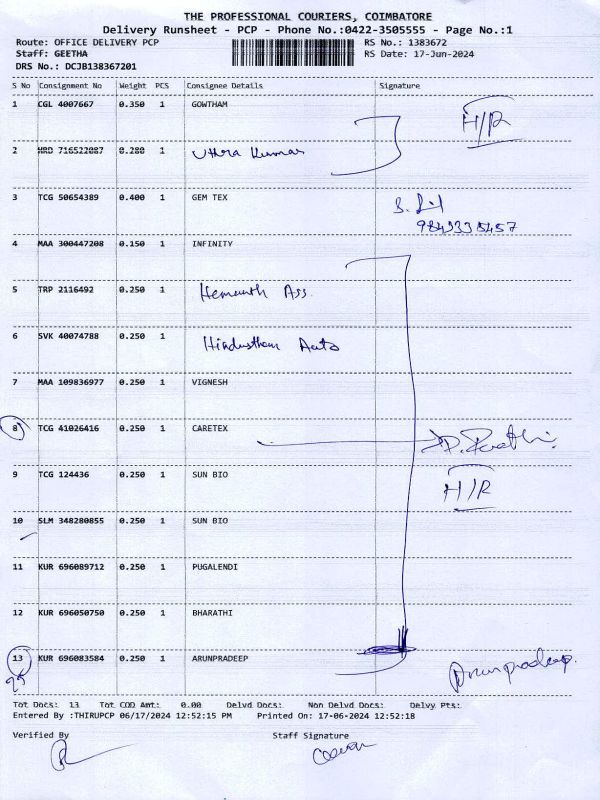 THE PROFESSIONAL COURIERS, COIMBATORE
Delivery Runsheet - PCP - Phone No.:0422-3505555 - Page No.:1
Route: OFFICE DELIVERY PCP RS No.: 1383672
Staff: GEETHA RS Date: 17-Jun-2024
DRS No.: DCJB138367201
S No Consignment No Weight PCS Consignee Details Signature
1 CGL 4007667 0.350 1 GOWTHAM H/R
2 HRD 716522087 0.280 1 Uthra Kumar
3 TCG 50654389 0.400 1 GEM TEX
4 MAA 300447208 0.150 1 INFINITY
5 TRP 2116492 0.250 1 Hemanth Ass.
6 SVK 40074788 0.250 1 Hindusthan Auto
7 MAA 109836977 0.250 1 VIGNESH
8 TCG 41026416 0.250 1 CARETEX
9 TCG 124436 0.250 1 SUN BIO H/R
10 SLM 348280855 0.250 1 SUN BIO
11 KUR 696089712 0.250 1 PUGALENDI
12 KUR 696050750 0.250 1 BHARATHI
13 KUR 696083584 0.250 1 ARUNPRADEEP Arunpradeep.
Tot Docs: 13 Tot COD Amt: 0.00 Delvd Docs: Non Delvd Docs: Delvy Pts:
Entered By :THIRUPCP 06/17/2024 12:52:15 PM Printed On: 17-06-2024 12:52:18
Verified By Staff Signature